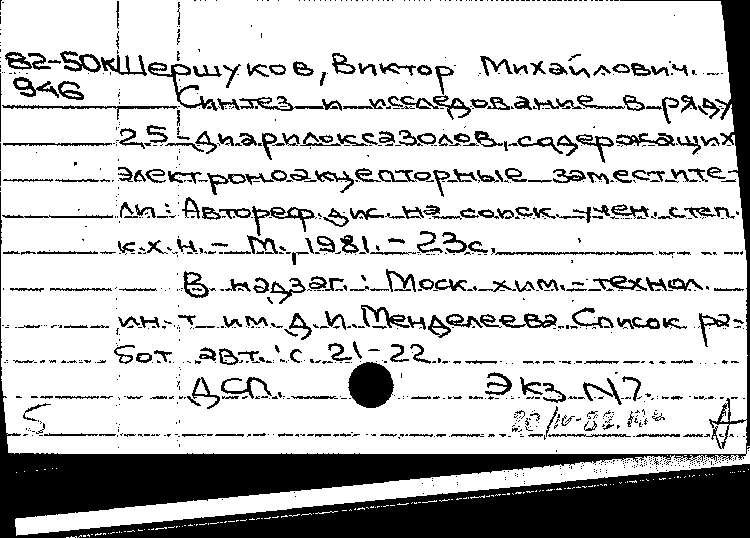 82-50к Шершуков, Виктор Михайлович.
946 Синтез и исследование в ряду
2,5-диарилоксазолов, содержащих
электроноакцепторные заместите-
ли: Автореф. дис. на соиск. учен. степ.
к.х.н. - М., 1981. - 23с.
В надзаг.: Моск. хим.-технол.
ин-т им. Д.И. Менделеева. Список ра-
бот авт.: с. 21-22.
ДСП. Экз N7.
S 20/IV-82. А